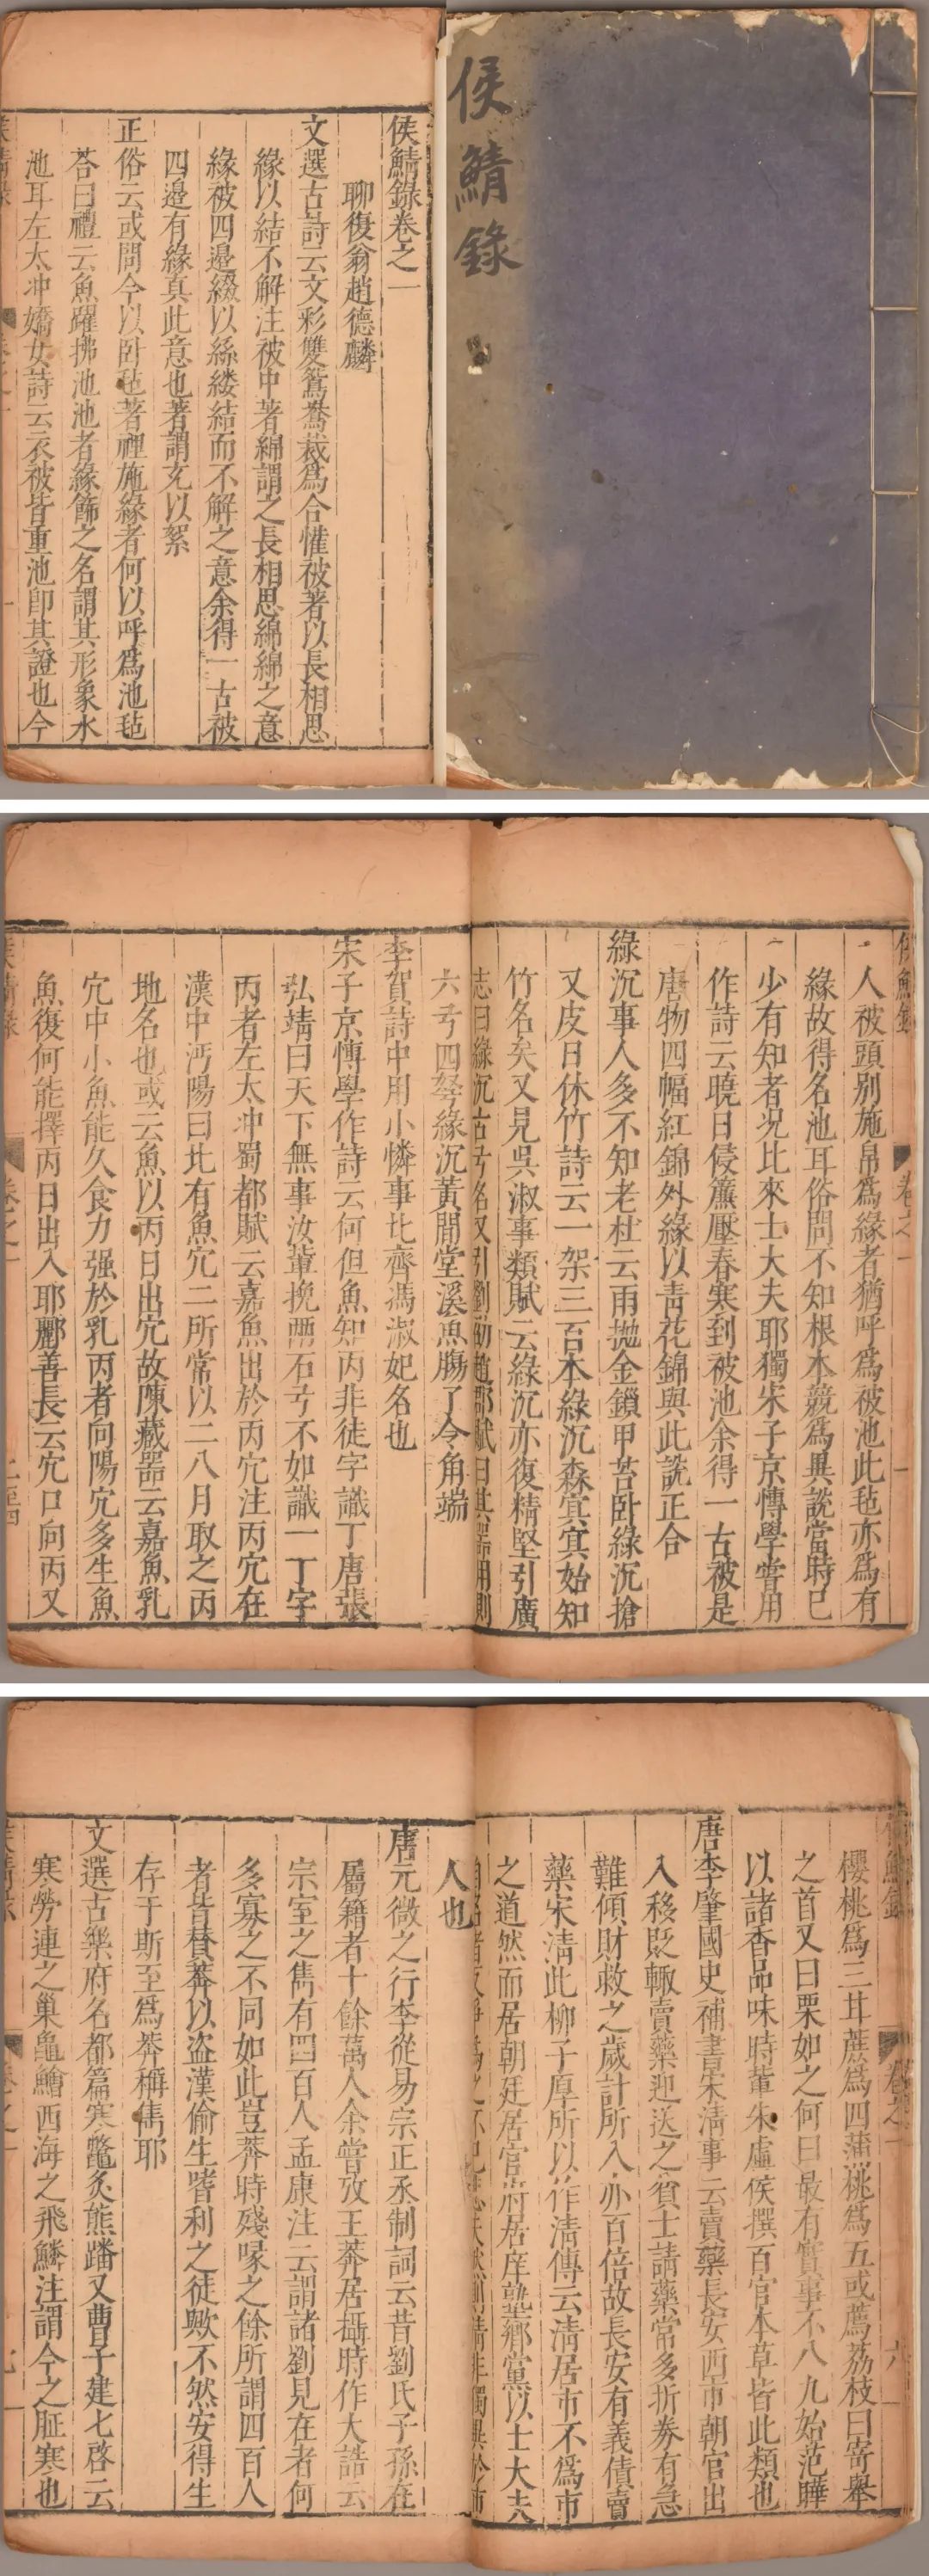 侯鯖錄
侯鯖錄卷之一
聊復翁趙德麟
文選古詩云文彩雙鴛鴦裁為合懽被著以長相思
緣以結不解注被中著綿謂之長相思綿綿之意
緣被四邊綴以絲縷結而不解之意余得一古被
四邊有緣真此意也著謂充以絮
正俗云或問今以卧毡著裡施緣者何以呼為池毡
荅曰禮云魚躍拂池池者緣飾之名謂其形象水
池耳左太冲嬌女詩云衣被皆重池即其證也今
侯鯖錄 卷之一 一
人被頭别施帛為緣者猶呼為被池此毡亦為有
緣故得名池耳俗問不知根本競為異說當時已
少有知者况比來士大夫耶獨宋子京博學嘗用
作詩云曉日侵簾壓春寒到被池余得一古被是
唐物四幅紅錦外緣以青花錦與此說正合
綠沉事人多不知老杜云雨抛金鎖甲苔卧綠沉搶
又皮日休竹詩云一架三百本綠沉森㝠㝠始知
竹名矣又見吳淑事類賦云綠沉亦復精堅引廣
志曰綠沉古弓名又引劉劭趙郡賦曰其器用則
六弓四弩綠沉黃間堂溪魚膓丁令角端
李賀詩中用小憐事比齊馮淑妃名也
宋子京博學作詩云何但魚知丙非徒字識丁唐張
弘靖曰天下無事汝輩挽兩石弓不如識一丁字
丙者左太冲蜀都賦云嘉魚出於丙穴注丙穴在
漢中沔陽曰北有魚穴二所常以二八月取之丙
地名也或云魚以丙日出穴故陳藏器云嘉魚乳
穴中小魚能久食力强於乳丙者向陽穴多生魚
魚復何能擇丙日出入耶酈善長云穴口向丙又
侯鯖錄 卷之一 二至四
櫻桃為三甘蔗為四蒲桃為五或薦荔枝曰寄舉
之首又曰栗如之何曰最有實事不八九始范曄
以諸香品味時輩朱虛侯撰百官本草皆此類也
唐李肇國史補書宋清事云賣藥長安西市朝官出
入移貶輙賣藥迎送之貧士請藥常多折券有急
難傾財救之歲計所入亦百倍故長安有義債賣
藥宋清此柳子厚所以作清傳云清居市不為市
之道然而居朝廷居官府居庠塾鄉黨以士大夫
自名者反爭為之不已悲夫然則清非獨異於市
人也
唐元微之行李從易宗正丞制詞云昔劉氏子孫在
屬籍者十餘萬人余嘗攷王莽居攝時作大誥云
宗室之儁有四百人孟康注云謂諸劉見在者何
多寡之不同如此豈莽時殘喙之餘所謂四百人
者皆賛莽以盗漢偷生嗜利之徒歟不然安得生
存于斯至為莽稱儁耶
文選古樂府名都篇寒鼈炙熊蹯又曹子建七啓云
寒芳連之巢龜鱠西海之飛鱗注謂今之䏑寒也
侯鯖錄 卷之一 七